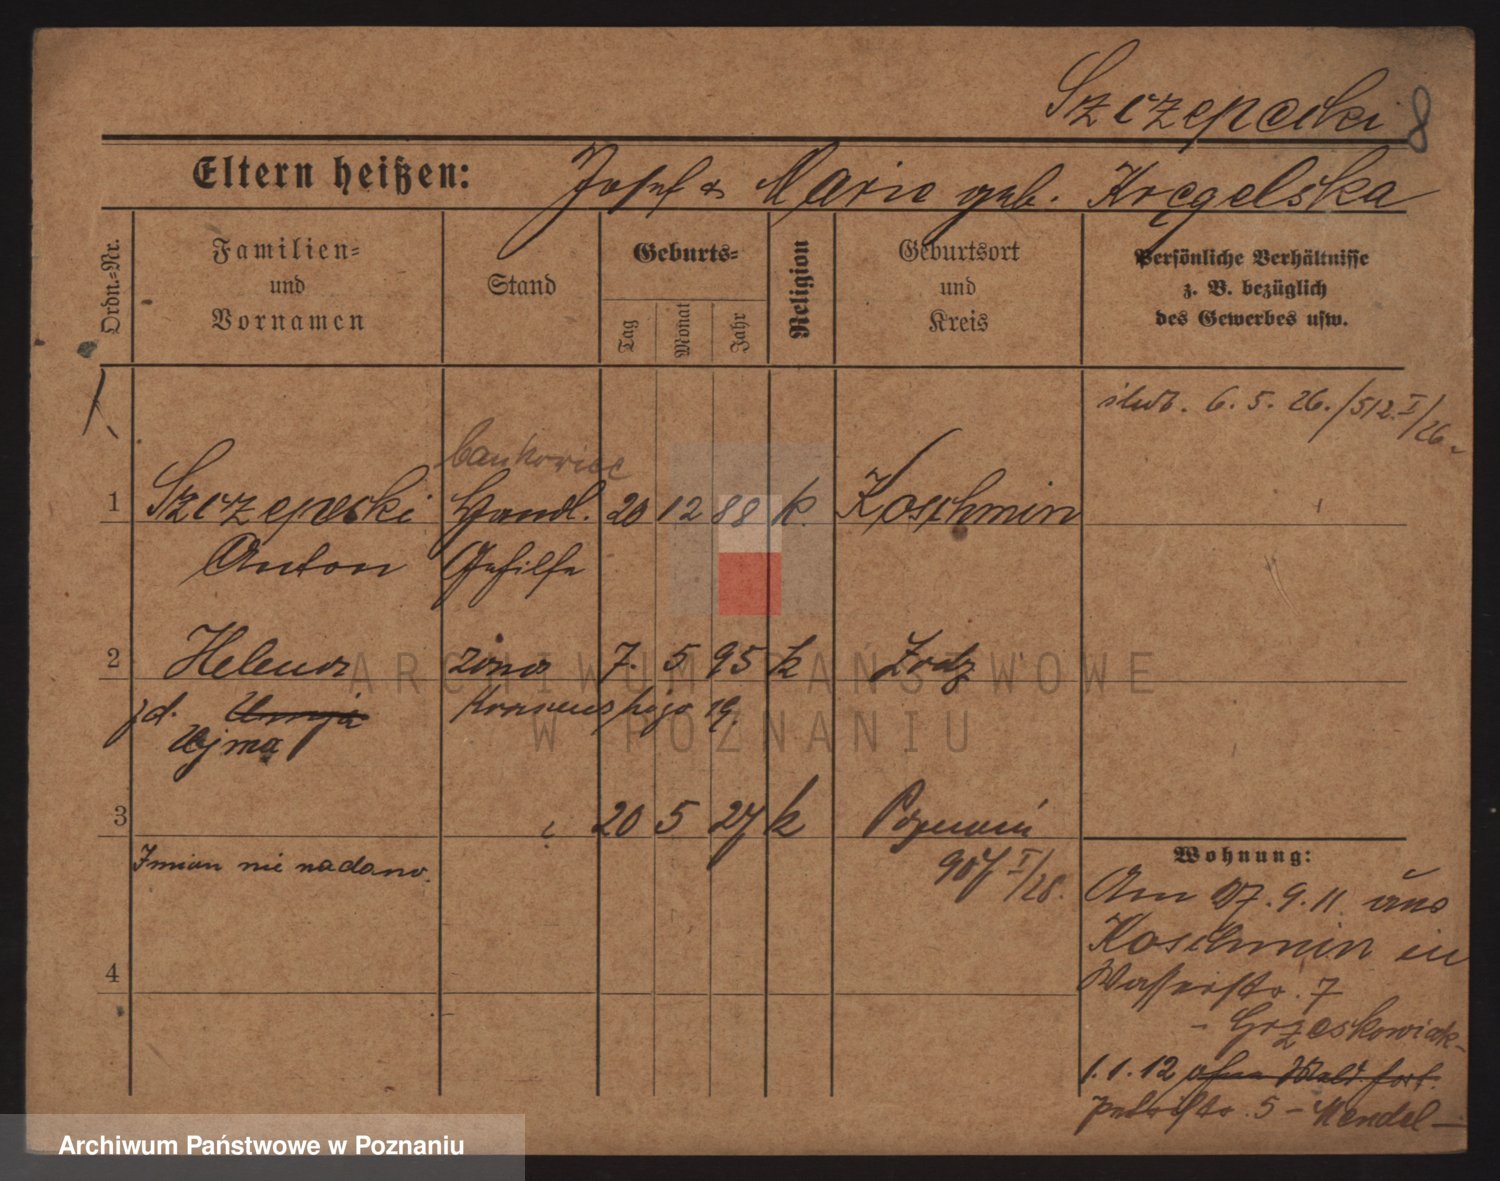 Szczepeski 8
Eltern heißen: Josef & Marie geb. Kręgelska
Ordn.-Nr.
Familien- und Vornamen
Stand
Geburts-
Tag
Monat
Jahr
Religion
Geburtsort und Kreis
Persönliche Verhältnisse z. B. bezüglich des Gewerbes usw.
6. 5. 26. /512 I/26.
bankowiec
1 Szczepeski Handl. 20 12 88 k. Koschmin
Anton Gehilfe
2 Helena żona 7. 5 95 k Łodz
zd. Ujma 19.
Ujma
3 20 5 27 k Poznań
Imian nie nadano. 907 I/28.
4
Wohnung:
Am 27. 9. 11 aus
Koschmin in
Wasserstr. 7
- Grzeskowiak -
1. 1. 12
Petristr. 5 - Mendel -
ARCHIWUM PAŃSTWOWE
W POZNANIU
Archiwum Państwowe w Poznaniu